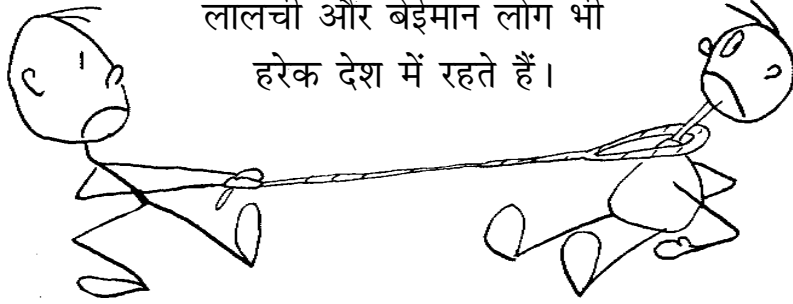 लालची और बेईमान लोग भी
हरेक देश में रहते हैं।